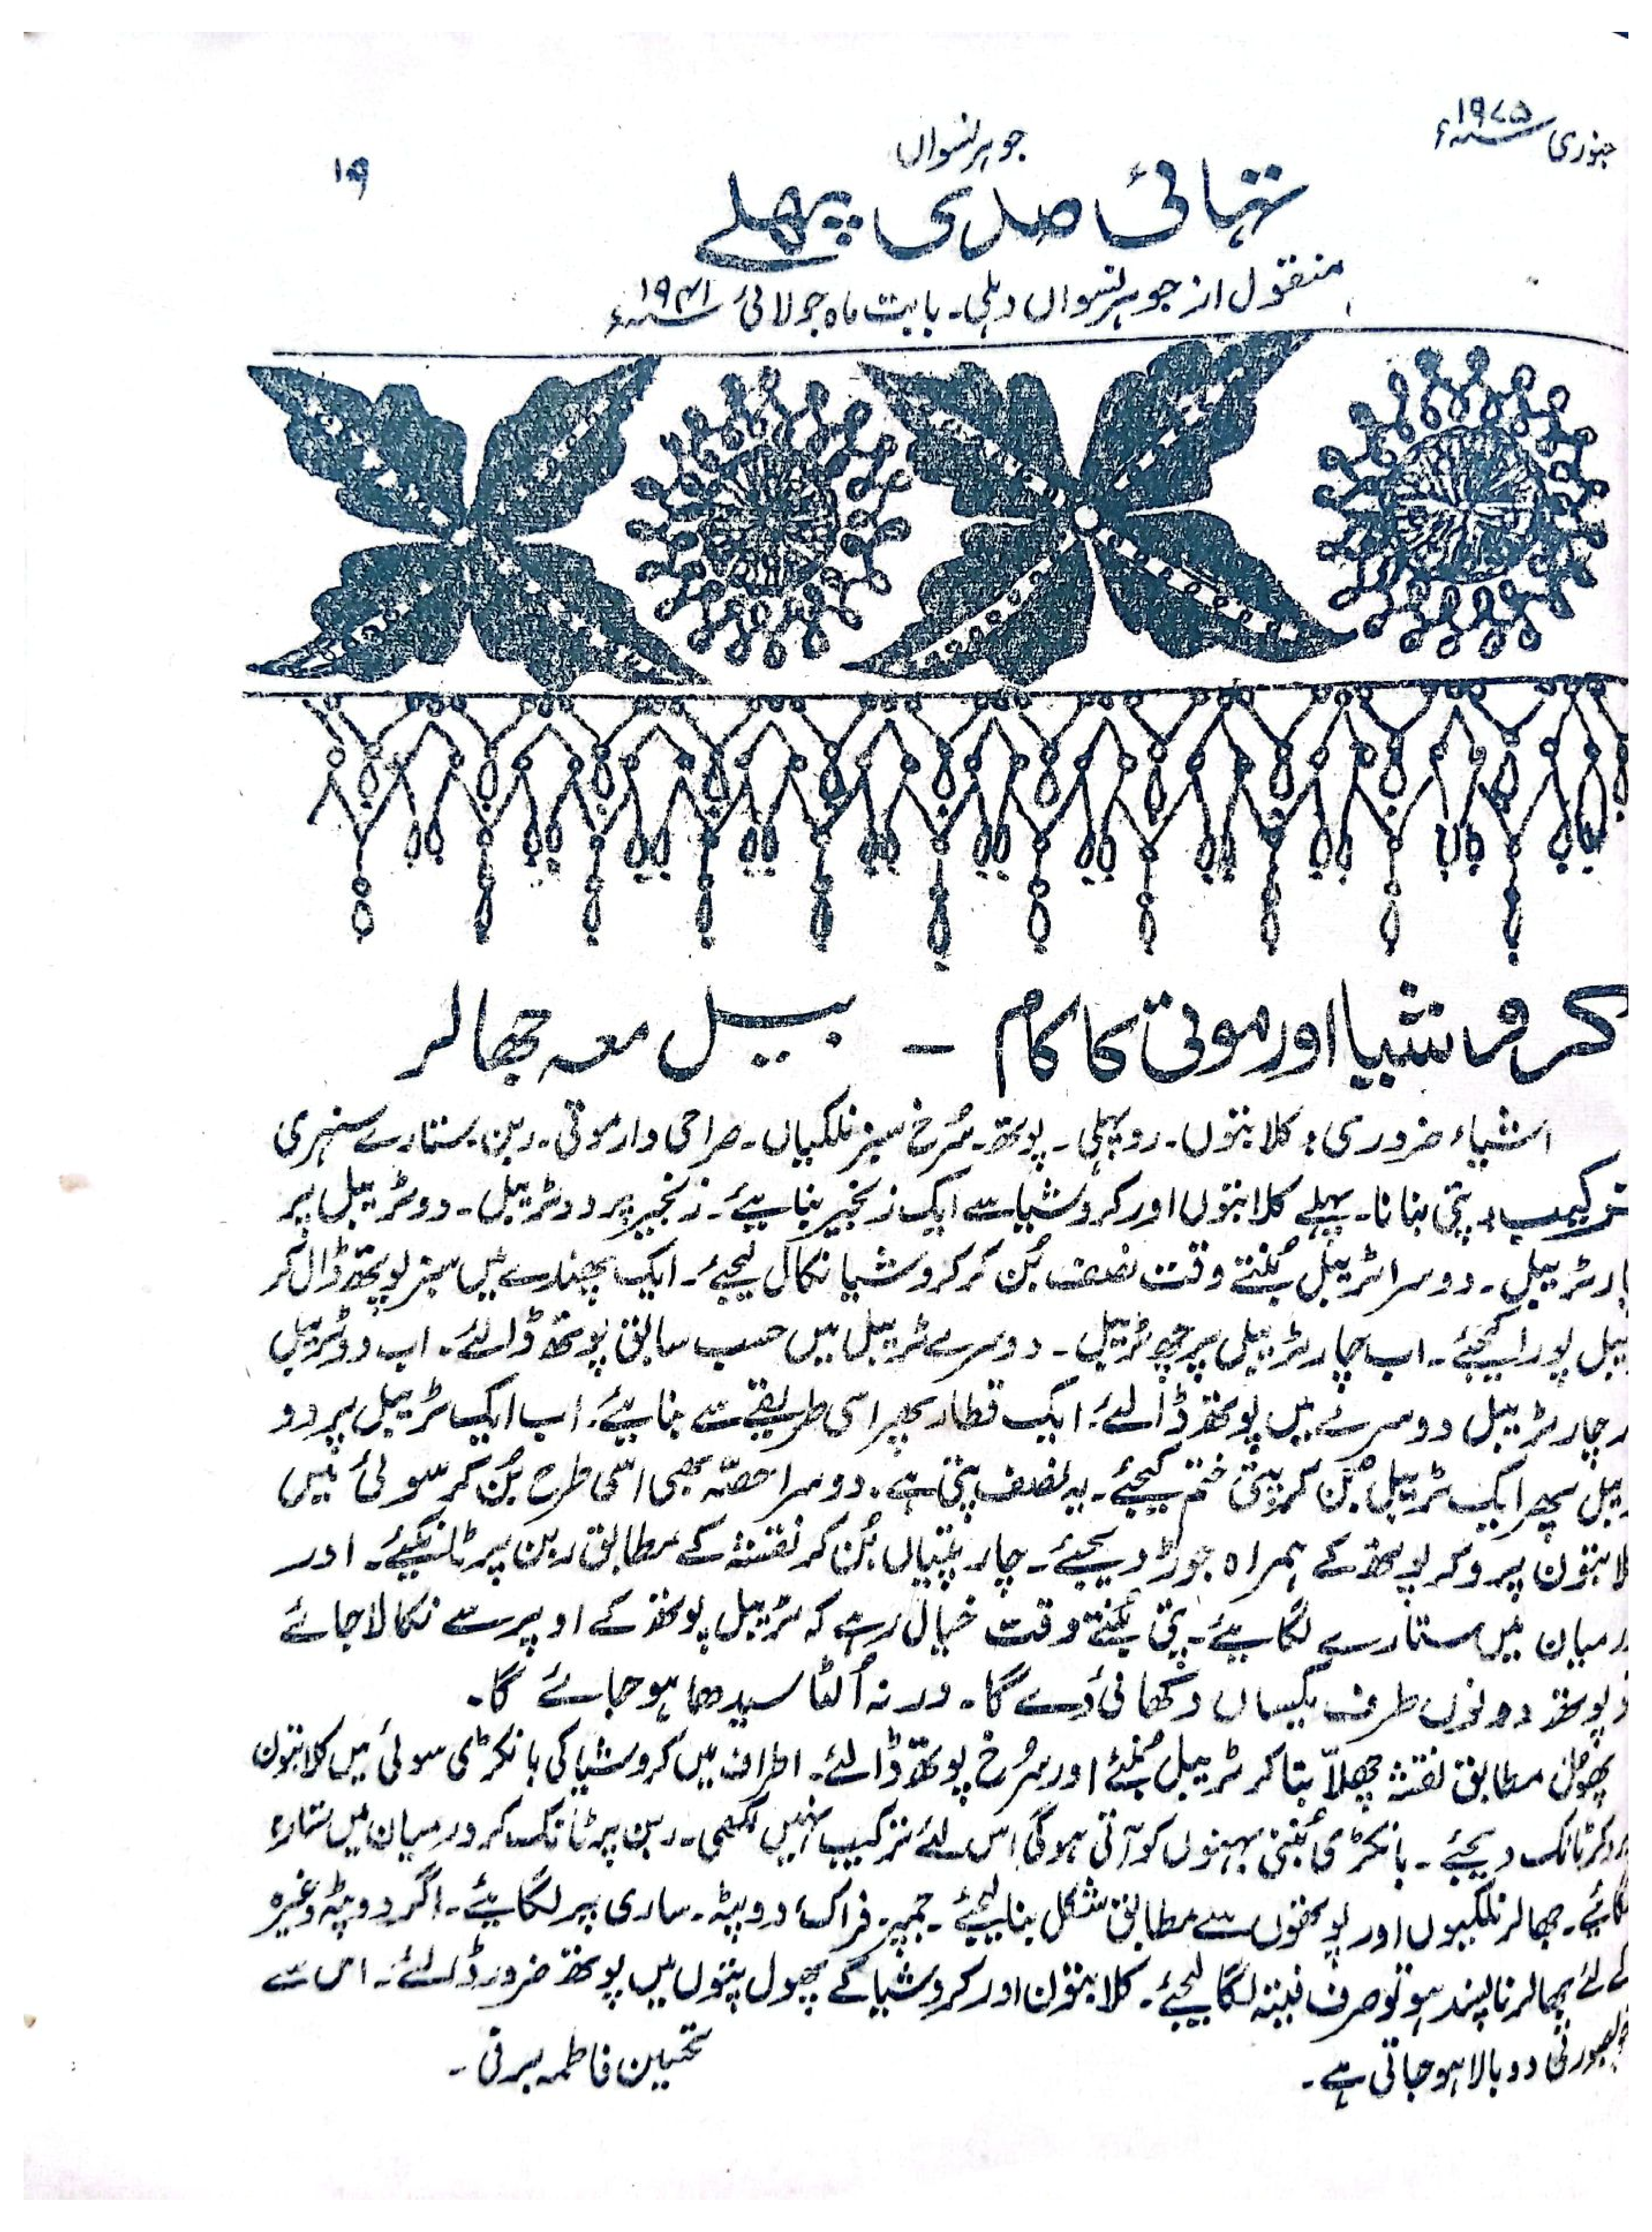 جنوری ۱۹۷۵ء
جوہر نسواں
۱۹
تہائی صدی پہلے
منقول از جوہر نسواں دہلی۔ بابت ماہ جولائی ۱۹۴۱ء
کروشیا اور موتی کا کام – بیل معہ جھالر
اشیاء ضروری: کلابتوں۔ روپہلی۔ پوتھ۔ سُرخ سبز نلکیاں۔ صراحی دار موتی۔ ربن۔ ستارے سنہری
ترکیب: پتی بنانا۔ پہلے کلابتوں اور کروشیا سے ایک زنجیر بنایئے۔ زنجیر پر دو ٹریبل۔ دو ٹریبل پر
ٹریبل۔ دوسرا ٹریبل بُنتے وقت نصف بُن کر کروشیا نکال لیجئے۔ ایک پھندے میں سبز پوتھ ڈال کر
پورا کیجئے۔ اب چار ٹریبل پر چھ ٹریبل۔ دوسرے ٹریبل میں حسب سابق پوتھ ڈالئے۔ اب دو ٹریبل
چار ٹریبل دوسرے میں پوتھ ڈالئے۔ ایک قطار پھر اسی طریقے سے بنایئے۔ اب ایک ٹریبل پر دو
پھر ایک ٹریبل بُن کر پتی ختم کیجئے۔ یہ نصف پتی ہے۔ دوسرا حصّہ بھی اسی طرح بُن کر سوئی میں
پرو کر پوتھ کے ہمراہ جوڑ دیجئے۔ چار پتیاں بُن کر نقشہ کے مطابق ربن پر ٹانکیئے۔ اور
میں ستارے لگایئے۔ پتی بُنتے وقت خیال رہے کہ ٹریبل پوتھ کے اوپر سے نکالا جائے
پوتھ دونوں طرف یکساں دکھائی دے گا۔ ورنہ اُلٹا سیدھا ہو جائے گا۔
پھول مطابق نقشہ چھلاّ بنا کر ٹریبل بُنئے اور سُرخ پوتھ ڈالئے۔ اطراف میں کروشیا کی بانکڑی سوئی میں کلابتون
ٹانک دیجئے۔ بانکڑی بُننی بہنوں کو آتی ہوگی اس لئے ترکیب نہیں لکھی۔ ربن پر ٹانک کر درمیان میں ستارہ
جھالر نلکیوں اور پوتھوں سے مطابق شکل بنا لیجئے۔ جمپر، فراک، دوپٹہ۔ ساری پر لگایئے۔ اگر دوپٹہ وغیرہ
کے لئے جھالر ناپسند ہو تو صرف فیتہ لگا لیجئے۔ کلابتون اور کروشیا کے پھول پتوں میں پوتھ ضرور ڈالئے۔ اس سے
خوبصورتی دوبالا ہو جاتی ہے۔
تحسین فاطمہ برنی۔